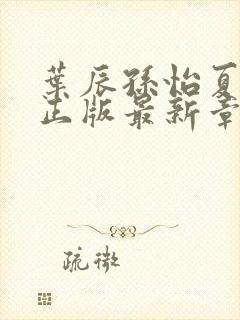 葉辰孫怡夏
正版最新章
疏微